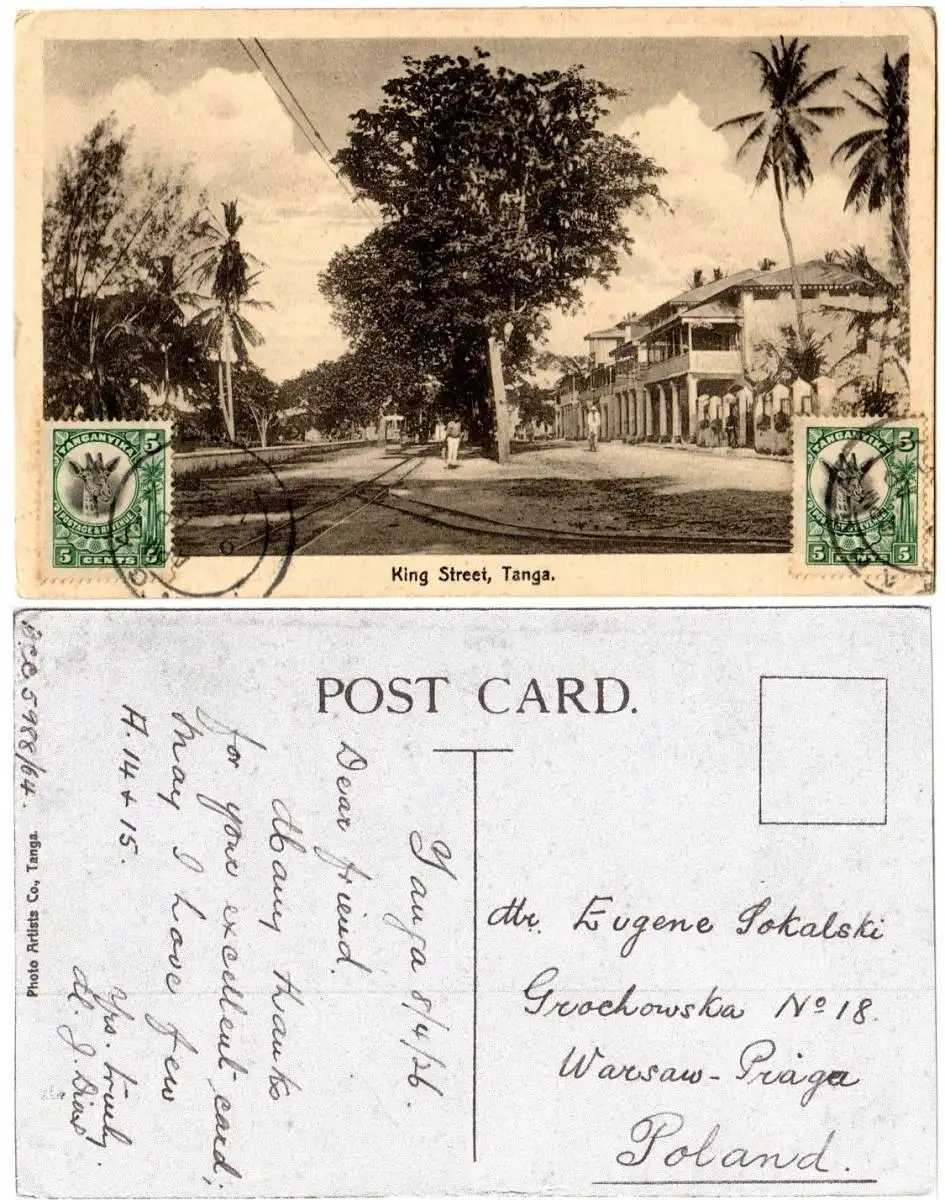 TANGANYIKA
5
POSTAGE & REVENUE
5 5
CENTS
TANGANYIKA
5
POSTAGE & REVENUE
5 5
CENTS
King Street, Tanga.
POST CARD.
Tanga 8/4/26.
Dear friend.
Many thanks
for your excellent card;
May I have few
A. 14 + 15.
Yrs. truly.
M. J. Dias
5988/64.
Photo Artists Co., Tanga.
Mr. Eugene Sokalski
Grochowska No 18.
Warsaw - Praga
Poland.